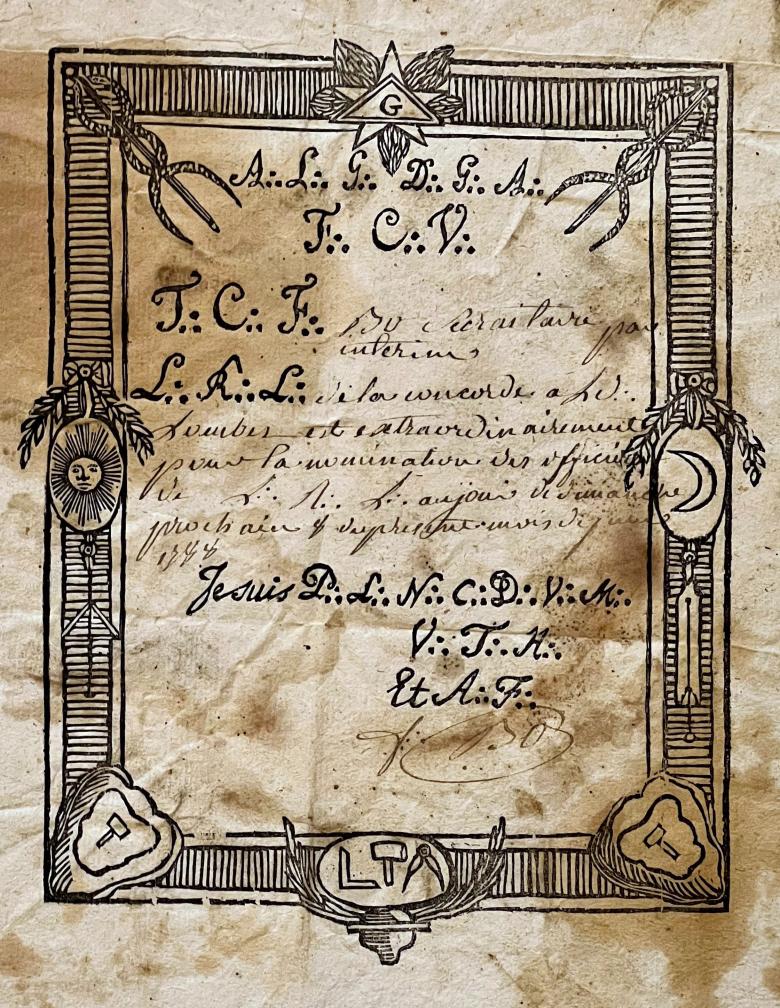 G
A∴ L∴ G∴ D∴ G∴ A∴
F∴ C∴ V∴
T∴ C∴ F∴ Bo Secraitaire par
interim
L∴ R∴ L∴ de la concorde a L'O∴
Lombez est extraordinairement
pour la nomination des officiers
de L∴ R∴ L∴ au jour de dimanche
prochain 8 du present mois de juin
1788
Je suis P∴ L∴ N∴ C∴ D∴ V∴ M∴
V∴ T∴ H∴
Et A∴ F∴
f∴ Bo
L T